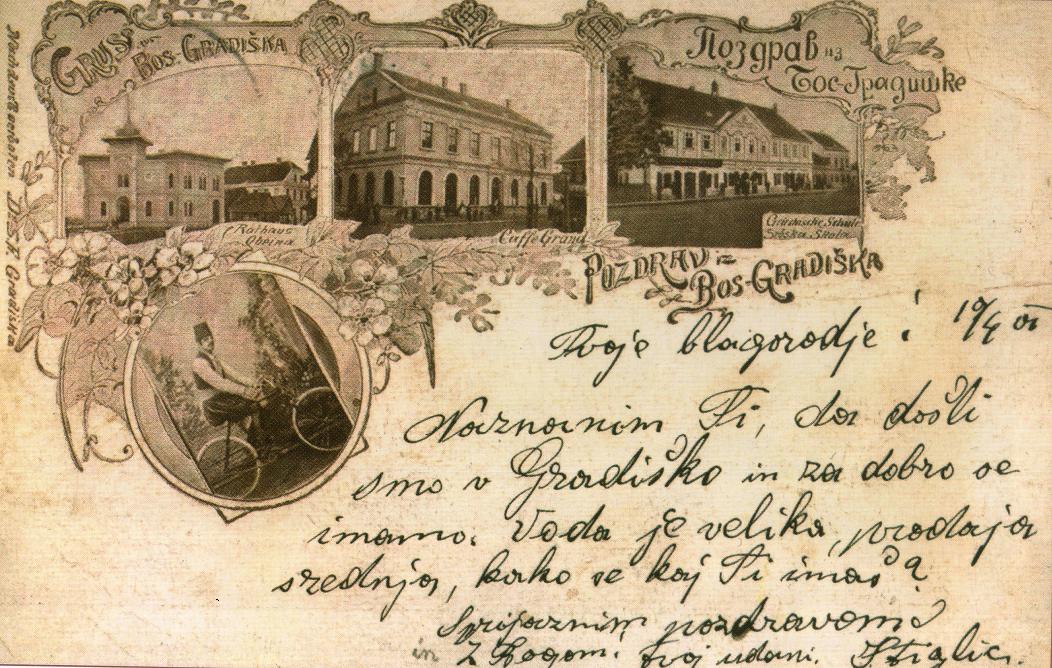 GRUSS aus
BOS-GRADIŠKA
Поздрав из
Бос-Градишке
Rathhaus
Obćina
Caffe Grand
Srbska Škola
POZDRAV iz
BOS-GRADIŠKA
Tvoje blagorodje!
Naznanim Ti, da došli
smo v Gradiško in za dobro se
imamo. Voda je velika, prodaja
srednja, kako se kaj Ti imaš?
S prijaznim pozdravom
in Z Bogom. tvoj udani.